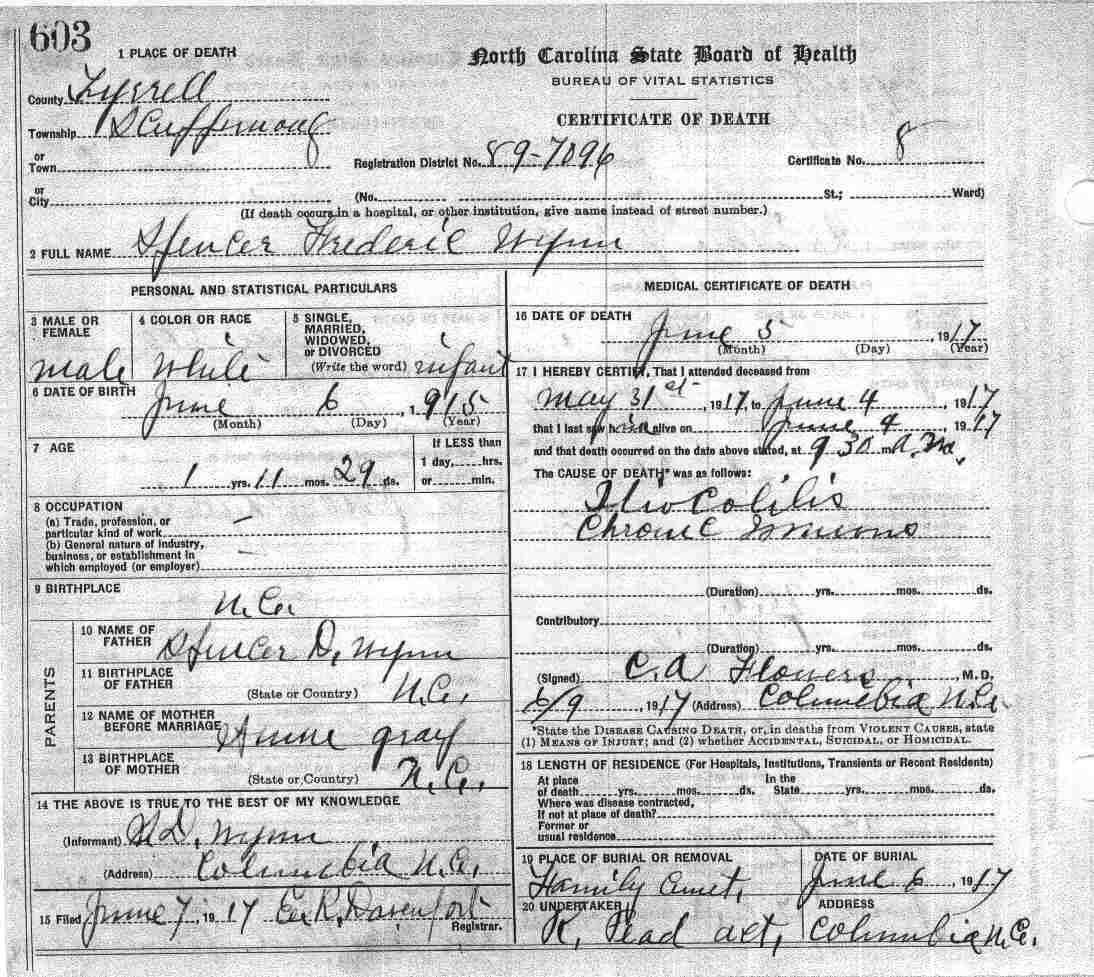 603
1 PLACE OF DEATH
North Carolina State Board of Health
BUREAU OF VITAL STATISTICS
CERTIFICATE OF DEATH
County Tyrrell
Township Scuppernong
or Town
Registration District No. 89-7096 Certificate No. 8
or City (No. St.; Ward)
(If death occurs in a hospital, or other institution, give name instead of street number.)
2 FULL NAME Spencer Frederic Wynn
PERSONAL AND STATISTICAL PARTICULARS
3 MALE OR FEMALE male
4 COLOR OR RACE White
5 SINGLE, MARRIED, WIDOWED, or DIVORCED
(Write the word) infant
6 DATE OF BIRTH
June 6, 1915
(Month) (Day) (Year)
7 AGE
If LESS than
1 day, hrs.
or min.
1 yrs. 11 mos. 29 ds.
8 OCCUPATION
(a) Trade, profession, or
particular kind of work —
(b) General nature of industry,
business, or establishment in
which employed (or employer) —
9 BIRTHPLACE
N.C.
PARENTS
10 NAME OF FATHER Spencer D. Wynn
11 BIRTHPLACE OF FATHER
(State or Country) N.C.
12 NAME OF MOTHER BEFORE MARRIAGE Annie gray
13 BIRTHPLACE OF MOTHER
(State or Country) N.C.
14 THE ABOVE IS TRUE TO THE BEST OF MY KNOWLEDGE
(Informant) S D. Wynn
(Address) Columbia N.C.
15 Filed June 7, 1917 Davenport
Registrar.
MEDICAL CERTIFICATE OF DEATH
16 DATE OF DEATH
June 5 1917
(Month) (Day) (Year)
17 I HEREBY CERTIFY, That I attended deceased from
May 31st, 1917, to June 4, 1917
that I last saw him alive on June 4, 1917
and that death occurred on the date above stated, at 9 30 m A.M.
The CAUSE OF DEATH* was as follows:
Ilio Colitis
Chronic
(Duration) yrs. mos. ds.
Contributory
(Duration) yrs. mos. ds.
(Signed) C.A Flowers, M.D.
6/9 1917 (Address) Columbia N.C.
*State the DISEASE CAUSING DEATH, or, in deaths from VIOLENT CAUSES, state
(1) MEANS OF INJURY; and (2) whether ACCIDENTAL, SUICIDAL, OR HOMICIDAL.
18 LENGTH OF RESIDENCE (For Hospitals, Institutions, Transients or Recent Residents)
At place of death yrs. mos. ds. In the State yrs. mos. ds.
Where was disease contracted,
If not at place of death?
Former or
usual residence
19 PLACE OF BURIAL OR REMOVAL
Family Cemet.
DATE OF BURIAL
June 6, 1917
20 UNDERTAKER
ADDRESS
Columbia N.C.